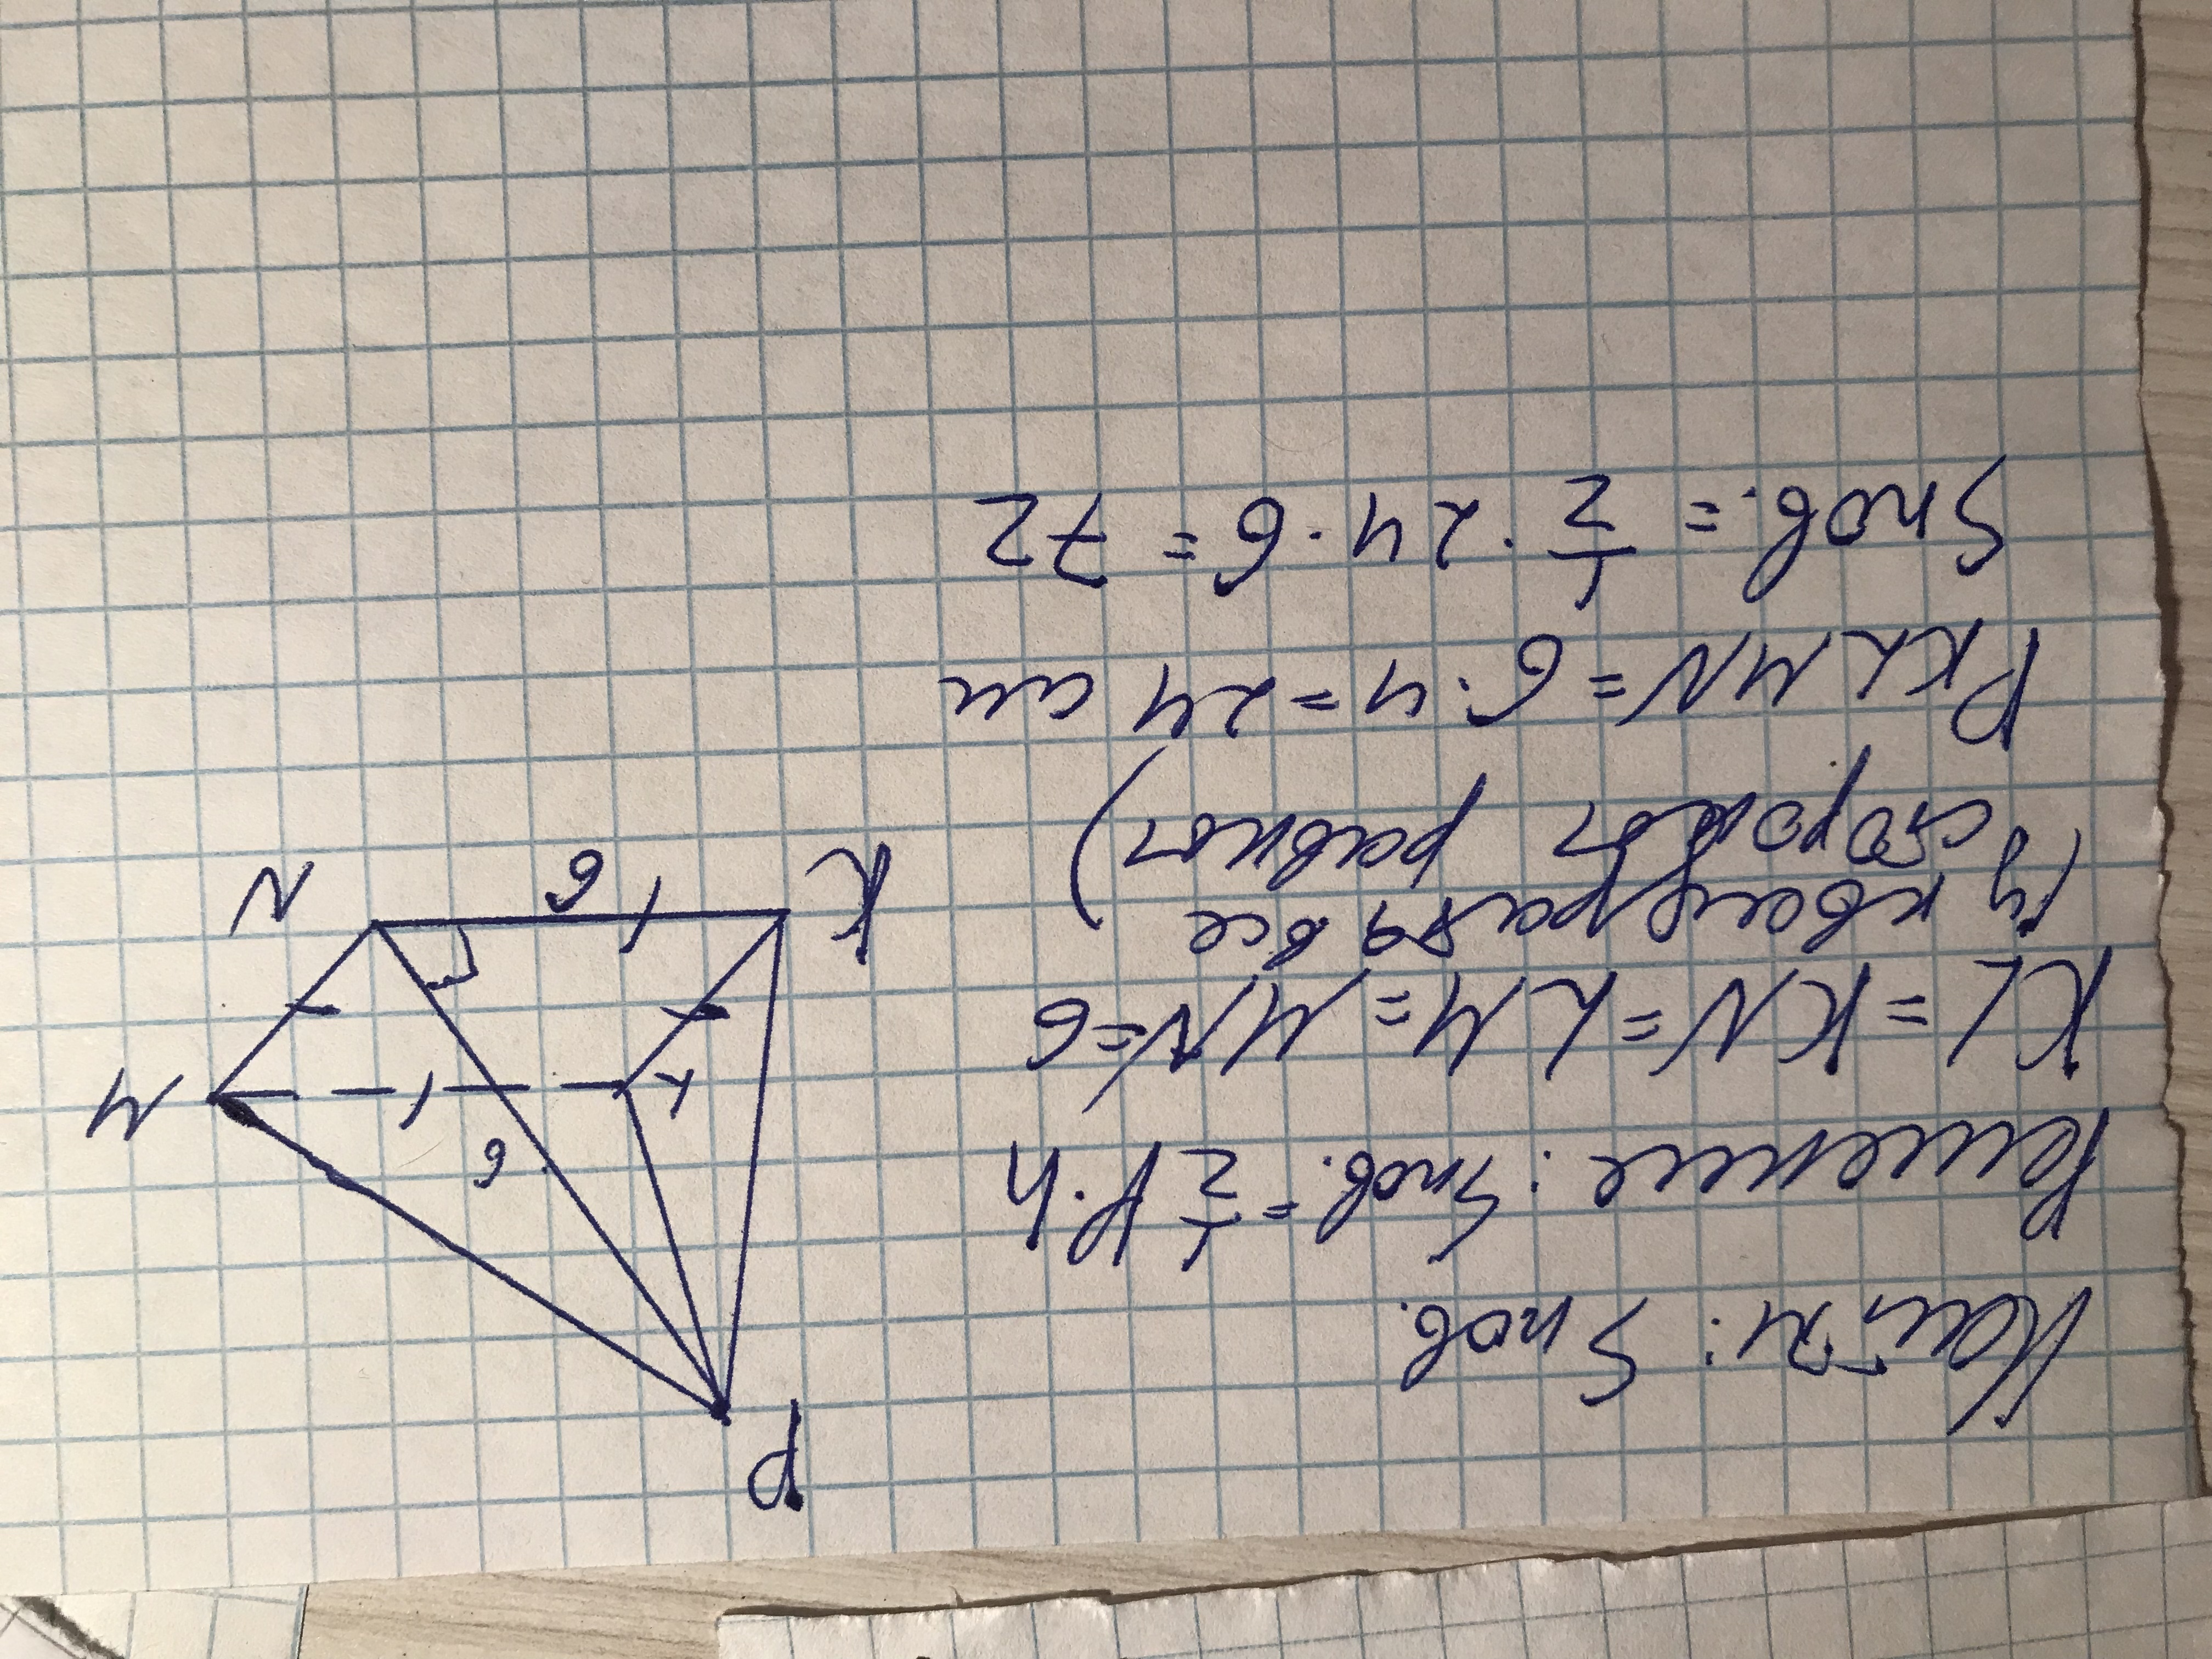 Найти: Sпов.
Решение: Sпов. = 1/2 P·h
KL = KN = LM = MN = 6
(у квадрата все
стороны равны)
PKLMN = 6·4 = 24 см
Sпов. = 1/2 · 24 · 6 = 72
P
6
M
L
N
6
K